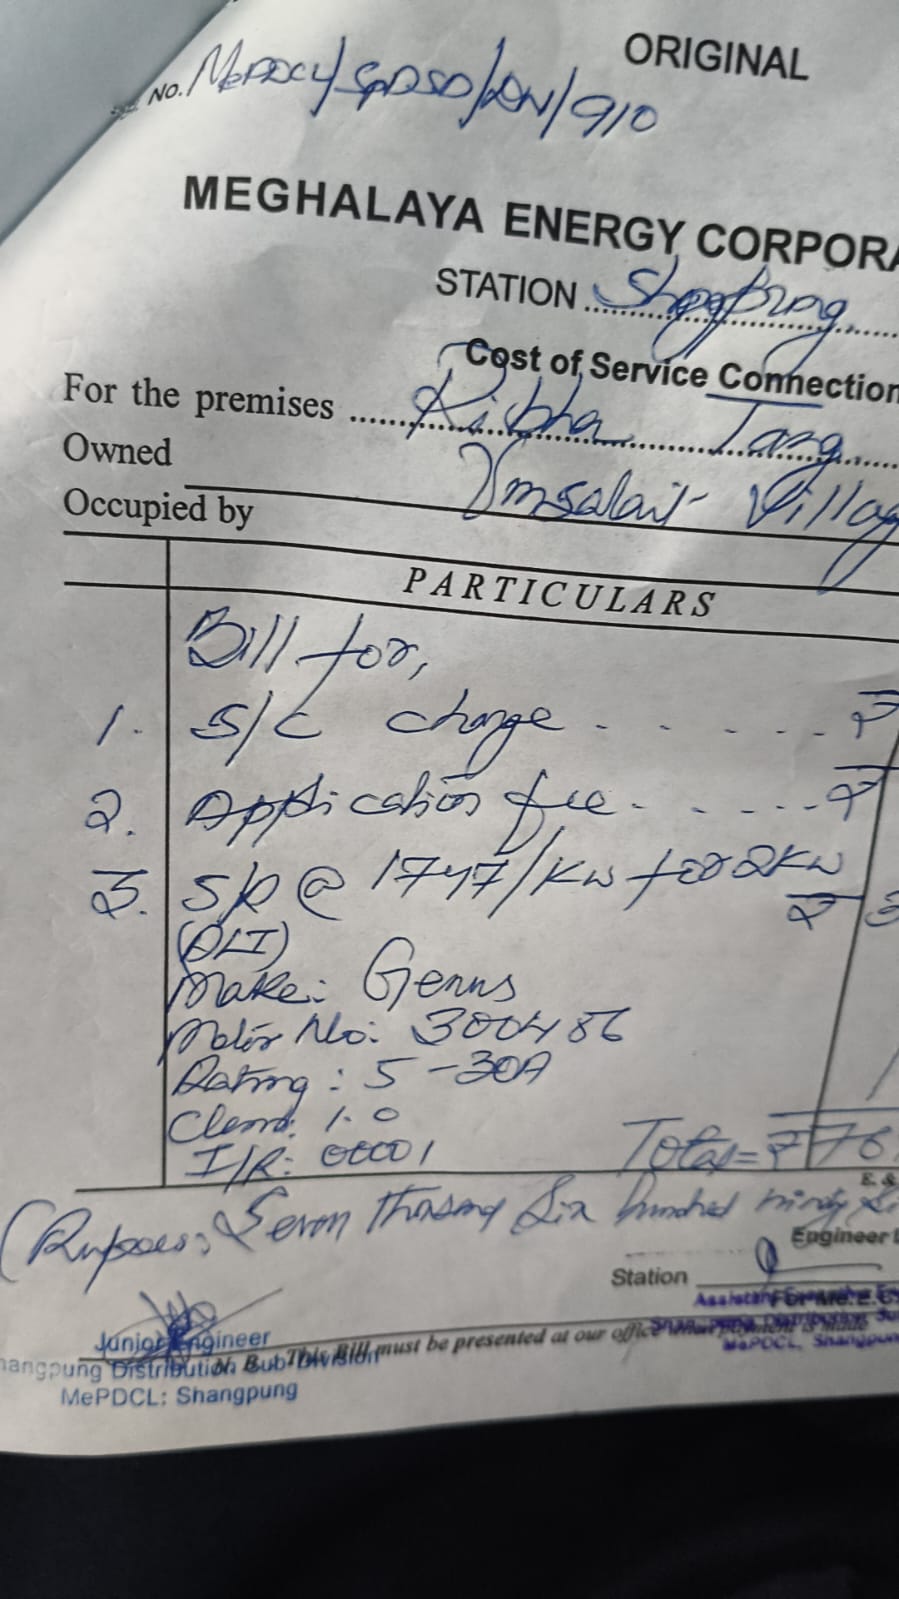 ORIGINAL
No. MePDCL/SPDSD/DN/910
MEGHALAYA ENERGY CORPORA
STATION Shangpung
Cost of Service Connection
For the premises Ribha Tang
Owned
Umsalait Villag
Occupied by
PARTICULARS
Bill for,
1. S/C charge ₹
2. Application fee ₹
3. S/D @ 1747/KW for 2KW ₹ 3
(DLI)
Make: Genus
Meter No: 300486
Rating: 5-30A
Class: 1.0
I/R: 00001
Total= ₹ 76
E. &
(Rupees: Seven Thousand Six hundred ninety
Engineer
Station
Junior Engineer
angpung Distribution Sub Division
N. B. This Bill must be presented at our office
MePDCL, Shangpung
MePDCL: Shangpung